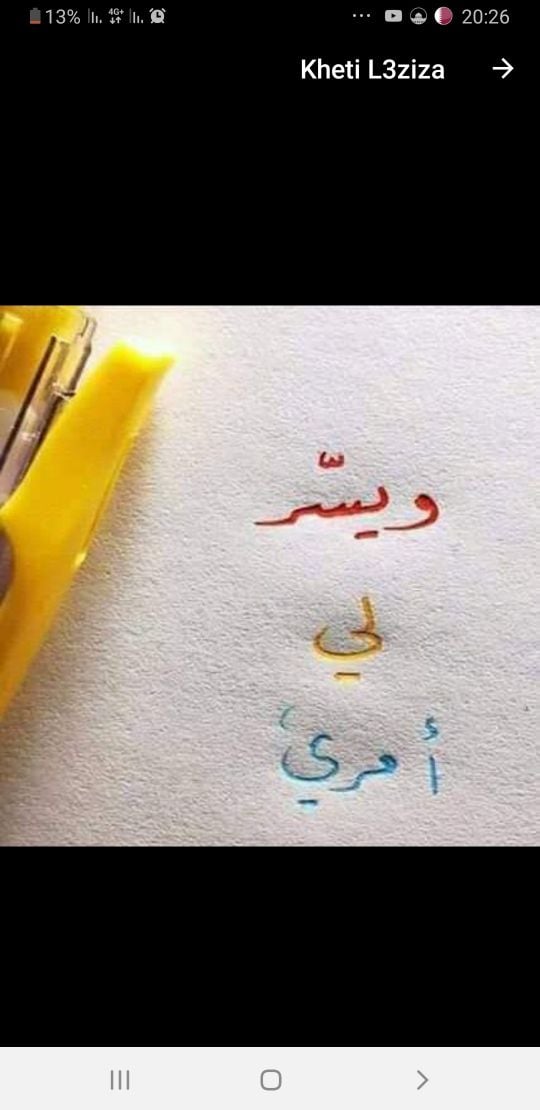 13% 4G+ 20:26
Kheti L3ziza
ويسّر
لي
أمري